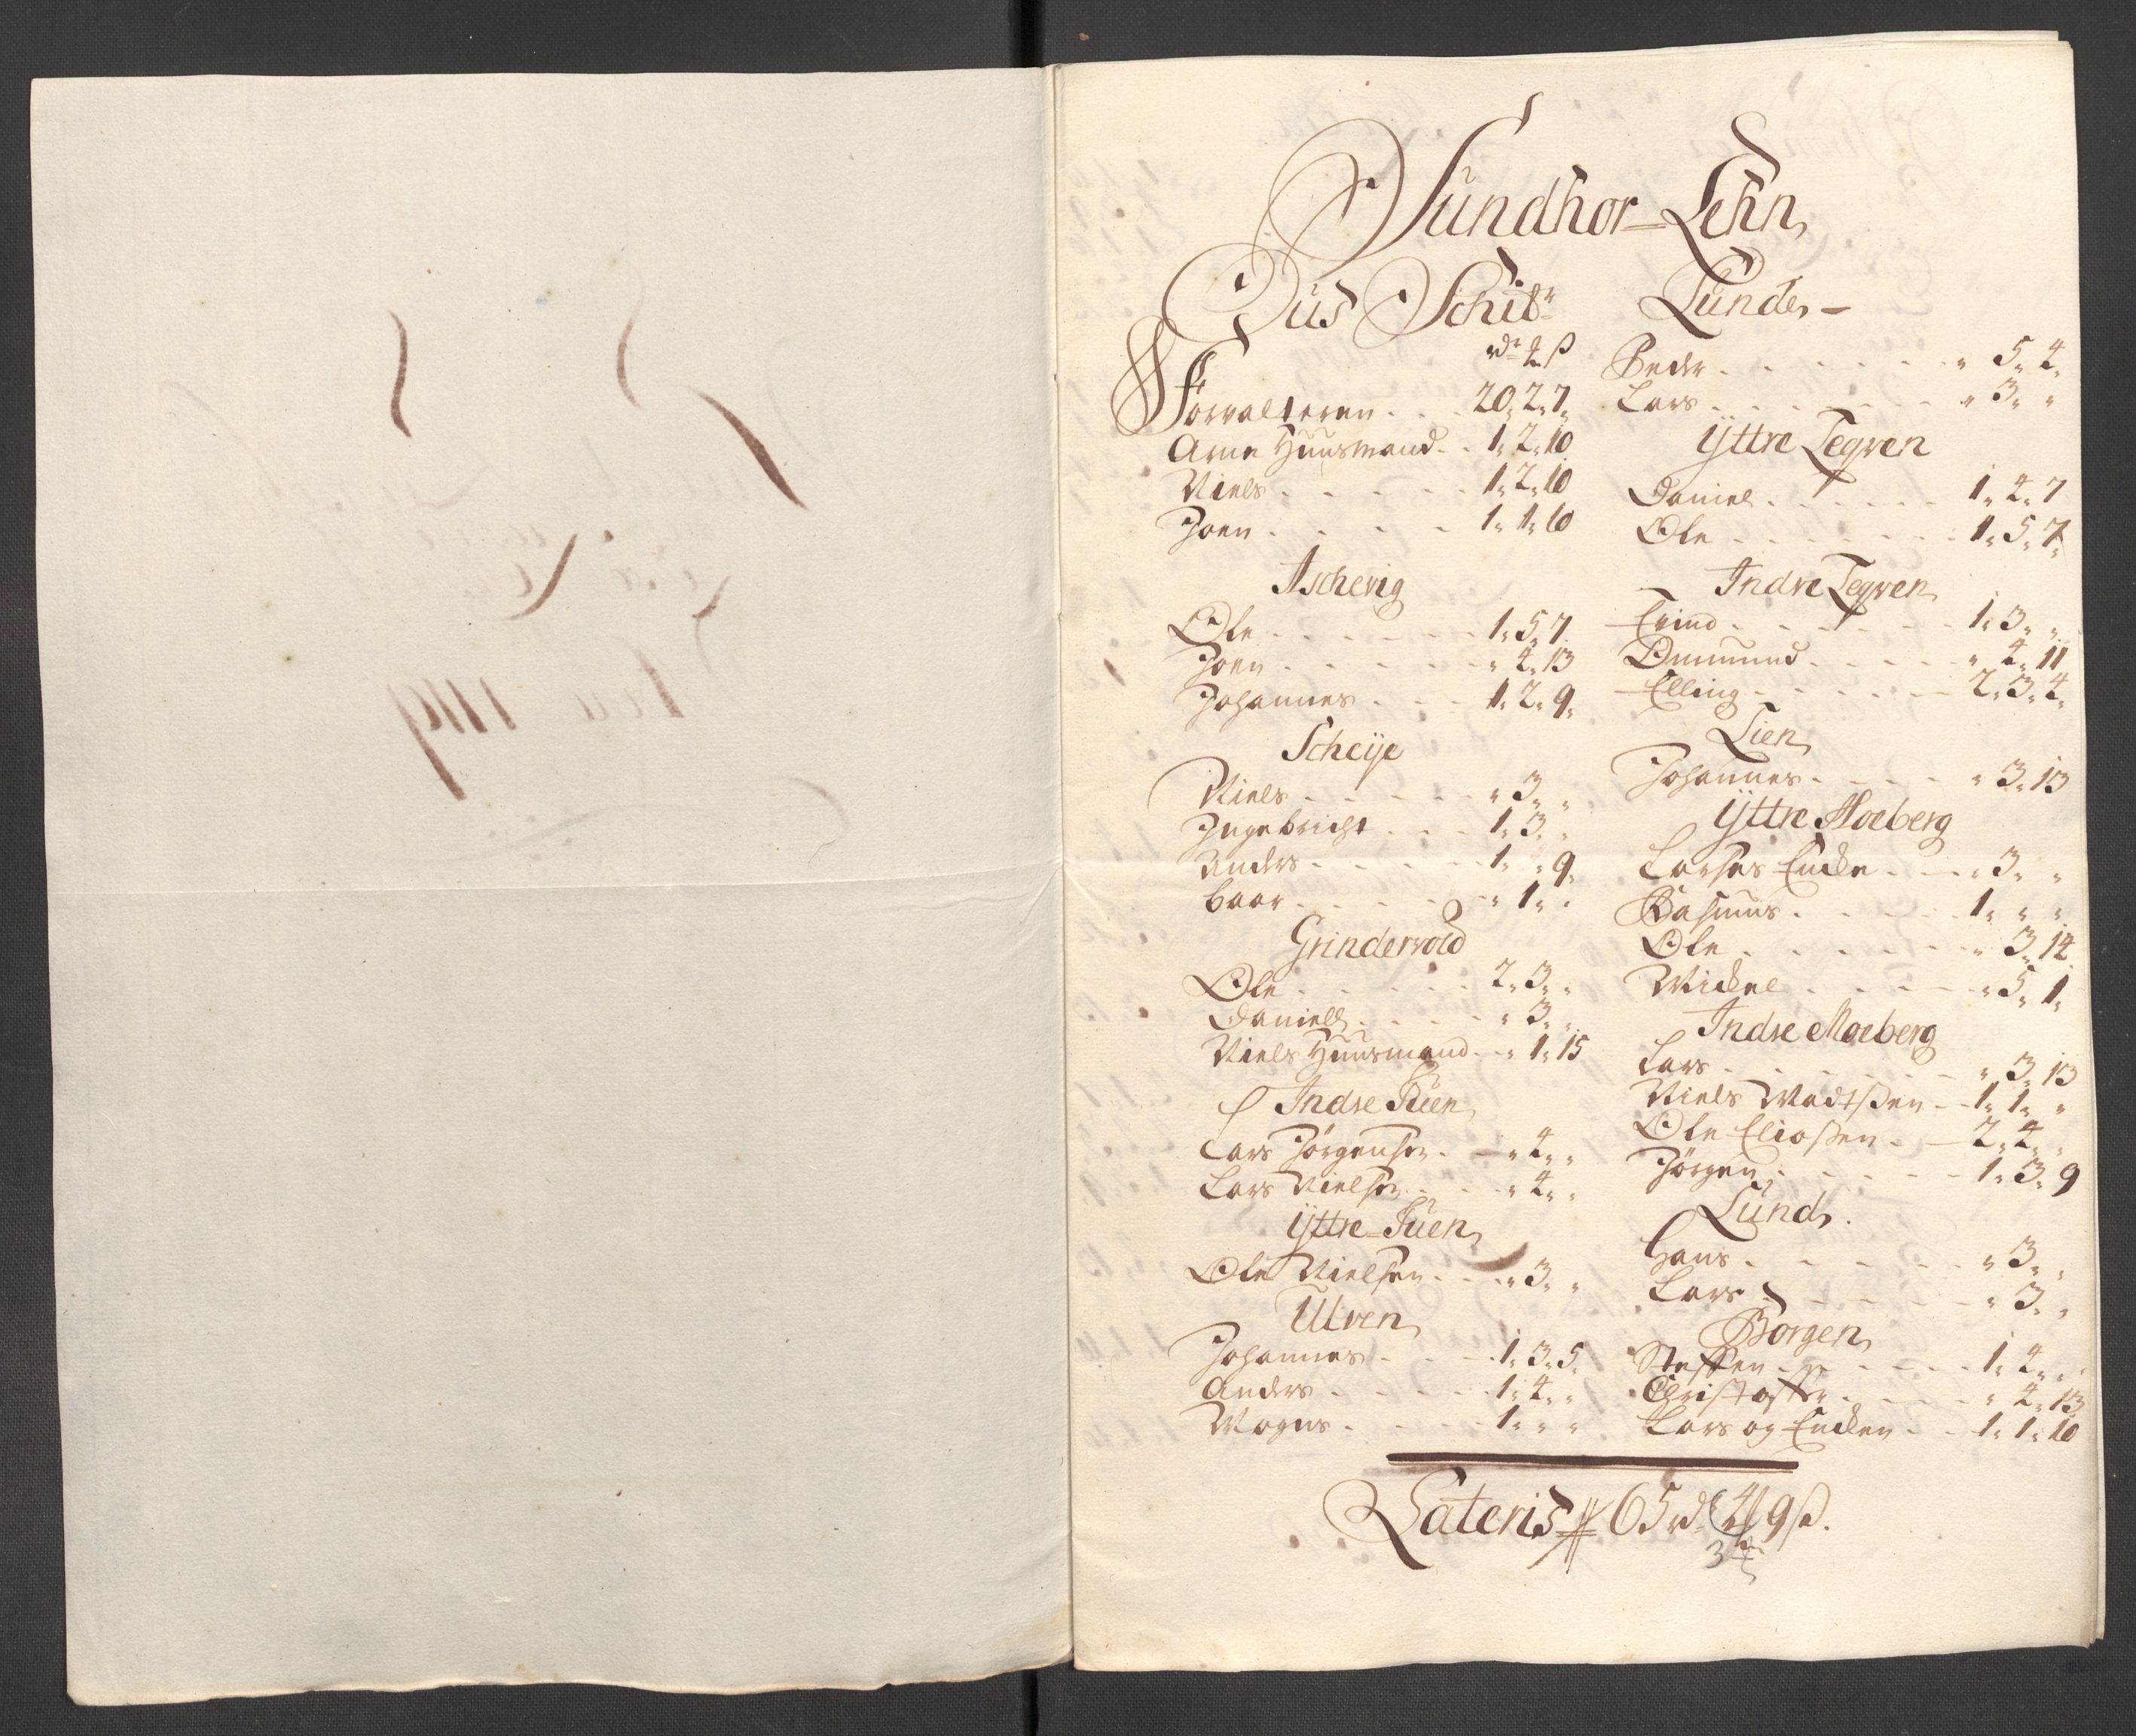 Sundhor-Lehn
Ous Schibr
rdr ¤ ß
Forvalteren . . . 20„ 2„ 7„
Arne Huusmand . . 1„ 2„ 10
Niels . . . . . 1„ 2„ 10
Joen . . . . 1„ 1„ 10
Ascherig
Ole . . . . . . 1„ 5„ 7
Joen . . . . . . „ 4„ 13
Johannes . . . 1„ 2„ 9„
Scheije
Niels . . . . . „ 3„ „
Ingebricht . . . 1„ 3„ „
Anders . . . . . 1„ „ 9„
Baar . . . . . . „ 1„ „
Grindervold
Ole . . . . . 2„ 3„ „
Daniell . . . . „ 3„ „
Niels Huusmand . „ 1„ 15
Indre Tuen
Lars Jörgensen . — „ 4„ „
Lars Nielsen . . . „ 4„ „
Yttre-Tuen
Ole Nielsen . . . „ 3„ „
Ulven
Johannes . . . 1„ 3„ 5
Anders . . . . . 1„ 4„ „
Mogns . . . . . 1„ „ „
Lunde —
Peder . . . . . . „ 5„ 4„
Lars . . . . . . . „ 3„ „
Yttre Tegven
Daniel . . . . . . 1„ 4„ 7
Ole . . . . . . . 1„ 5„ 7„
Indre Tegven
Evind . . . . . . . 1„ 3„ „
Ommund . . . . . „ 4„ 11
Elling . . . . . . 2„ 3„ 4„
Lien
Johannes . . . . . „ 3„ 13
Yttre Moeberg
Larses Encke . . . „ 3„ „
Rasmus . . . . . 1„ „ „
Ole . . . . . . . „ 3„ 14
Mickel . . . . . „ 5„ 1„
Indre Moeberg
Lars . . . . . . . „ 3„ 13
Niels Madtßen . . 1„ 1„ „
Ole Elioßen . — 2„ 4„ „
Jörgen . . . . . . 1„ 3„ 9
Lund
Hans . . . . . . „ 3„ „
Lars . . . . . . . „ 3„ „
Borgen
Steffen . . . . . . 1„ 4„ „
Christoffer . . . . „ 4„ 13
Lars og Encken . . 1„ 1„ 10
Lateris 65 rdr 4 9 ß.
3